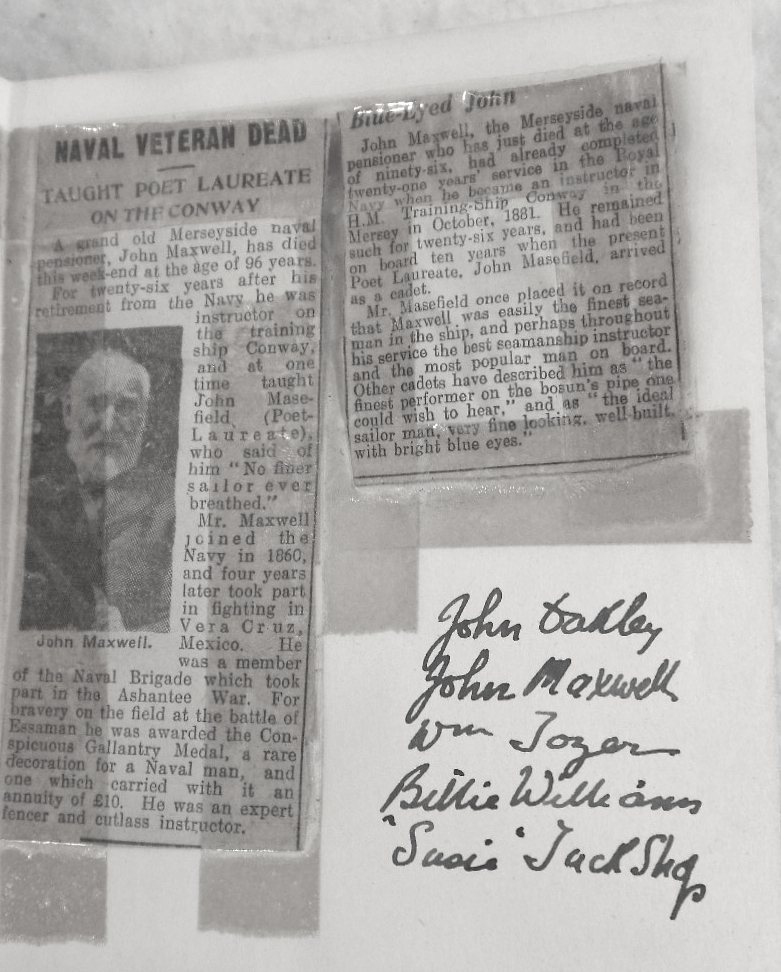 NAVAL VETERAN DEAD
TAUGHT POET LAUREATE
ON THE CONWAY
A grand old Merseyside naval
pensioner, John Maxwell, has died
this week-end at the age of 96 years.
For twenty-six years after his
retirement from the Navy he was
instructor on
the training
ship Conway,
and at one
time taught
John Mase-
field (Poet-
Laureate),
who said of
him "No finer
sailor ever
breathed."
Mr. Maxwell
joined the
Navy in 1860,
and four years
later took part
in fighting in
Vera Cruz,
Mexico. He
was a member
of the Naval Brigade which took
part in the Ashantee War. For
bravery on the field at the battle of
Essaman he was awarded the Con-
spicuous Gallantry Medal, a rare
decoration for a Naval man, and
one which carried with it an
annuity of £10. He was an expert
fencer and cutlass instructor.
John Maxwell.
Blue-Eyed John
John Maxwell, the Merseyside naval
pensioner who has just died at the age
of ninety-six, had already completed
twenty-one years' service in the Royal
Navy when he became an instructor in
H.M. Training-Ship Conway in the
Mersey in October, 1881. He remained
such for twenty-six years, and had been
on board ten years when the present
Poet Laureate, John Masefield, arrived
as a cadet.
Mr. Masefield once placed it on record
that Maxwell was easily the finest sea-
man in the ship, and perhaps throughout
his service the best seamanship instructor
and the most popular man on board.
Other cadets have described him as "the
finest performer on the bosun's pipe one
could wish to hear," and as "the ideal
sailor man, very fine looking, well-built,
with bright blue eyes."
John Oakley
John Maxwell
Wm Tozer
Billie Williams
"Susie" Tuck Shop